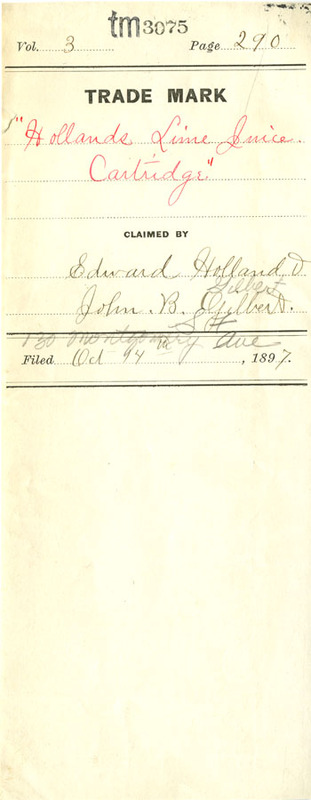 tm 3075
Vol. 3 Page 290
TRADE MARK
"Hollands Lime Juice
Cartridge"
CLAIMED BY
Edward Holland &
Gilbert
John. B. Gilbert.
S F
130 Montgomery Ave
Filed Oct 1897.